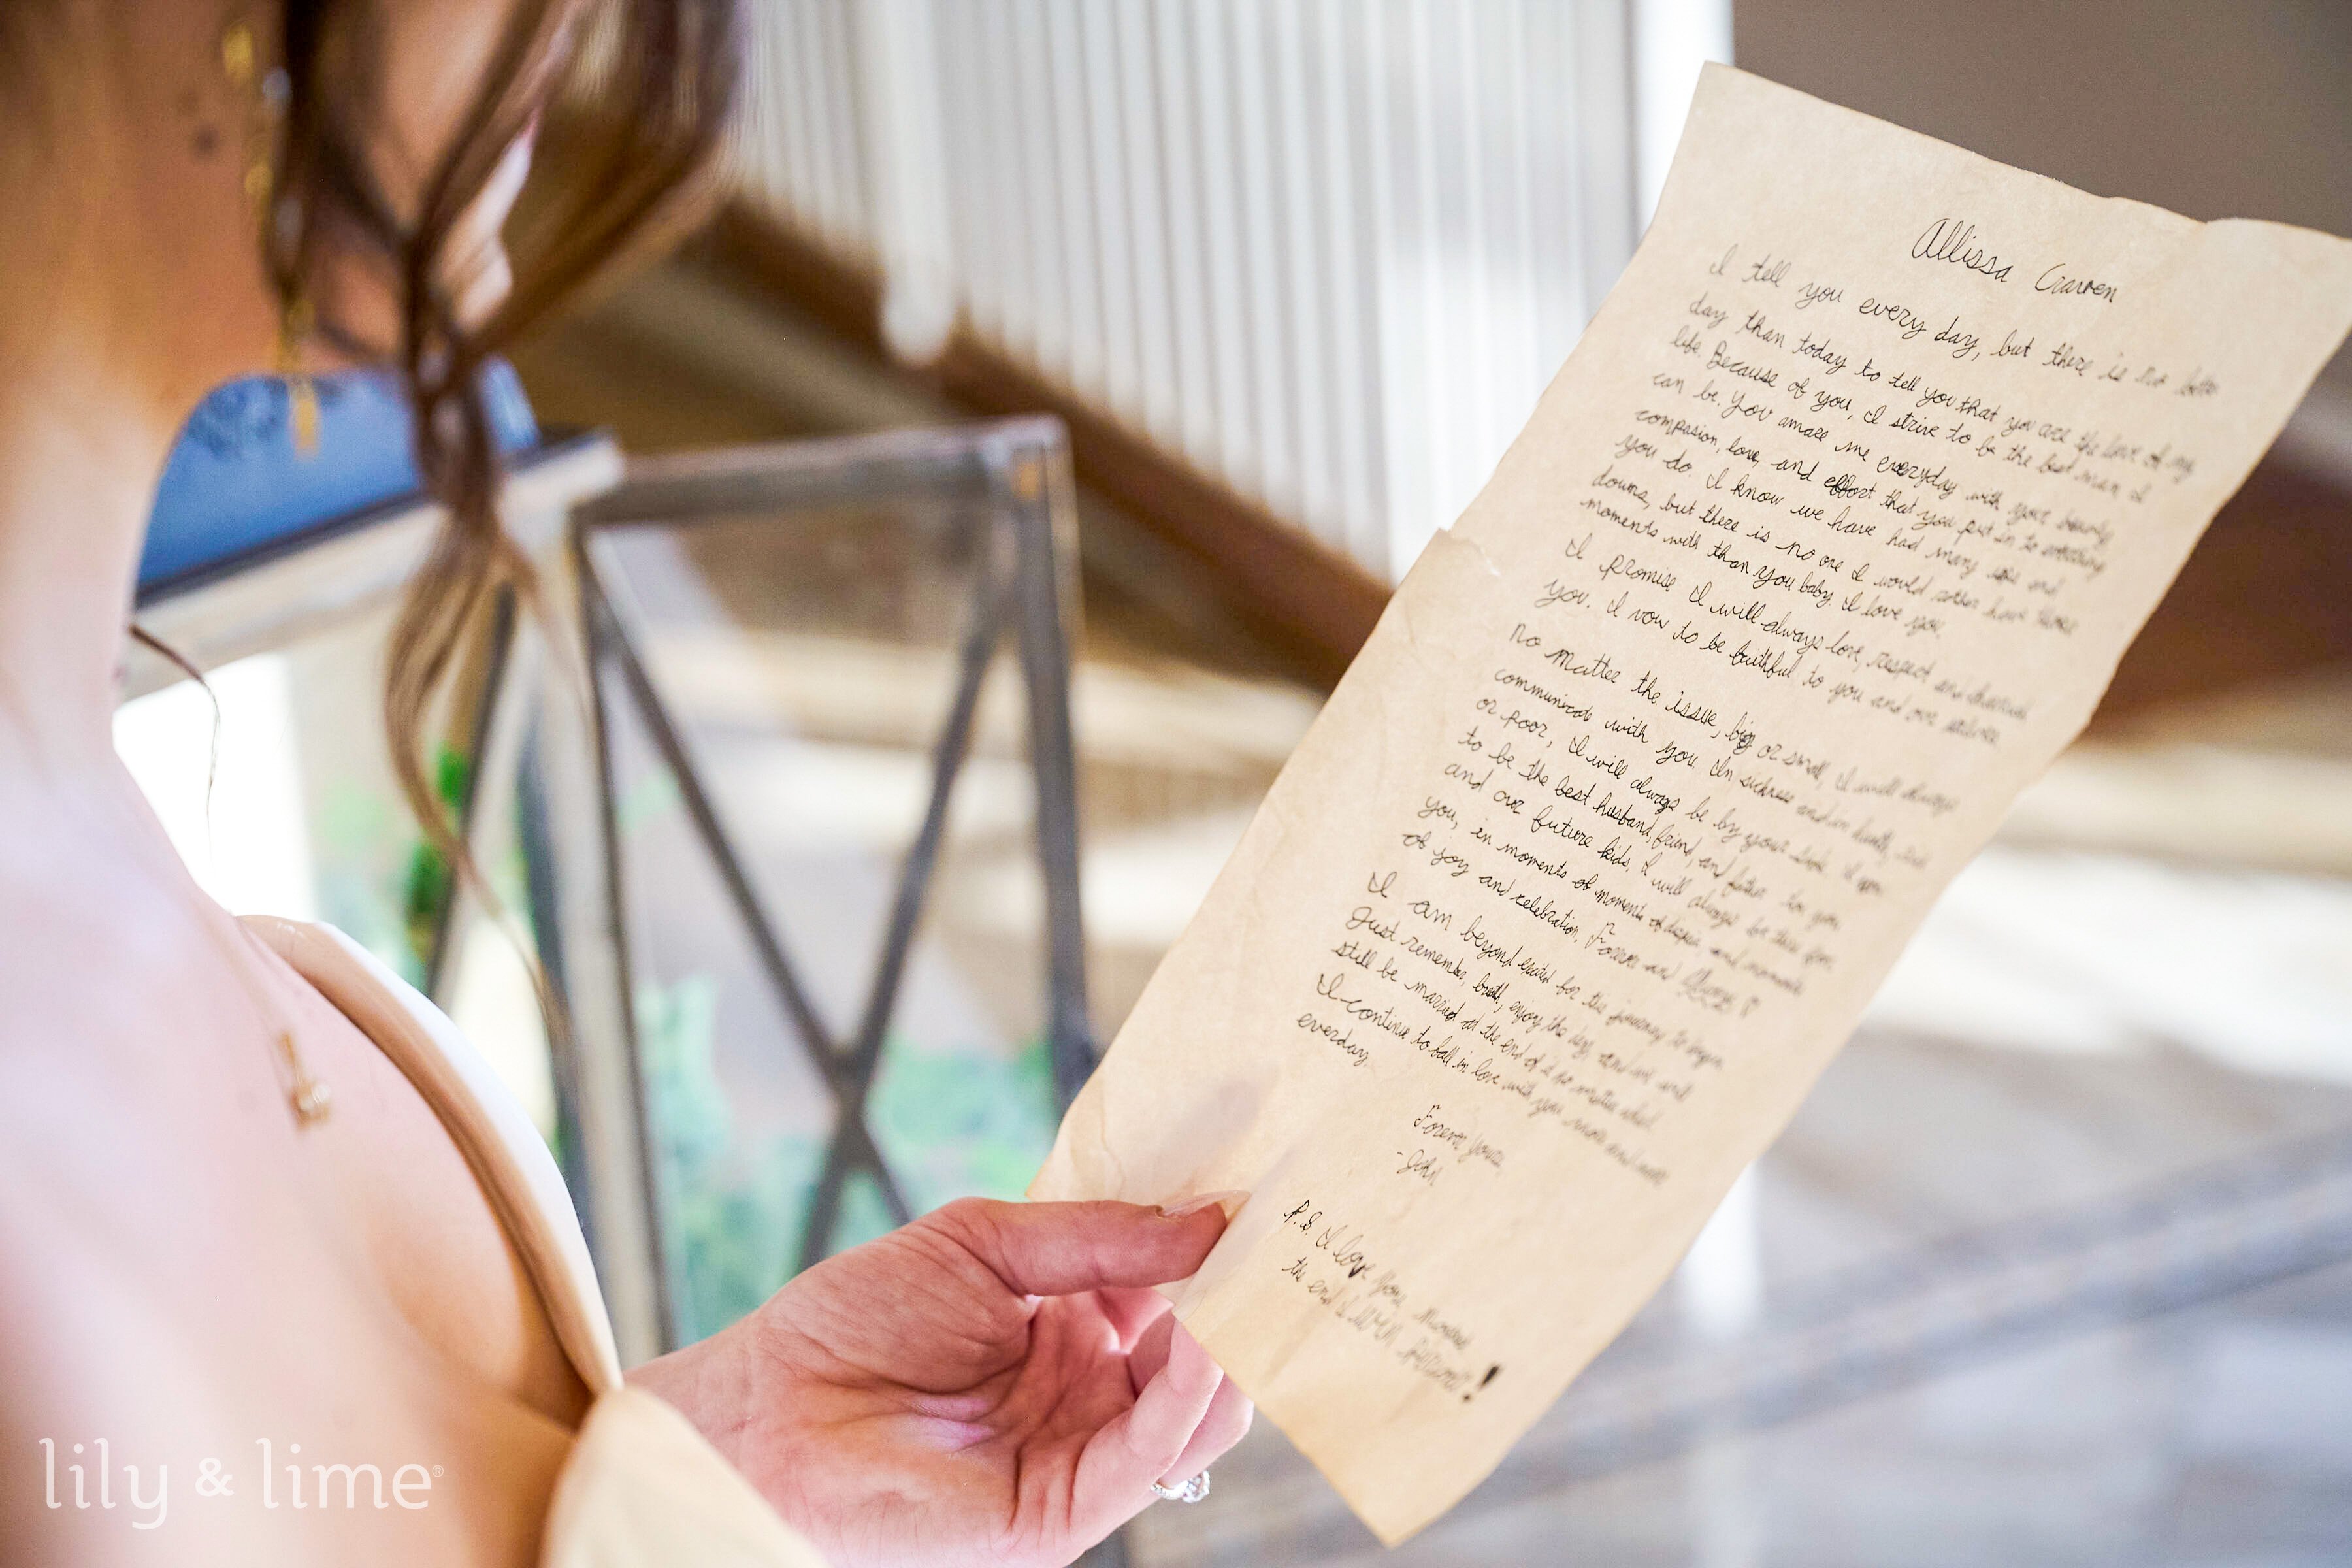 Allissa Craven
I tell you every day, but there is no better
day than today to tell you that you are the love of my
life. Because of you, I strive to be the best man I
can be. You amaze me everyday with your beauty,
compasion, love, and effort that you put in to everything
you do. I know we have had many ups and
downs, but there is no one I would rather have those
moments with than you baby. I love you.
I promise I will always love, respect and
you. I vow to be faithful to you and our
No matter the issue, big or small, I will always
communicate with you. In sickness and in health, rich
or poor, I will always be by your side. I vow
to be the best husband, friend, and father to you
and our future kids. I will always be there for
you, in moments of moments of dispair and moments
of joy and celebration. Forever and Always
I am beyond excited for this journey to begin.
Just remember, breath, enjoy the day, and we will
still be married at the end of it no matter what.
I continue to fall in love with you more and more
everday.
Forever yours,
-John
P.S. I love you more
the end I win
lily & lime®